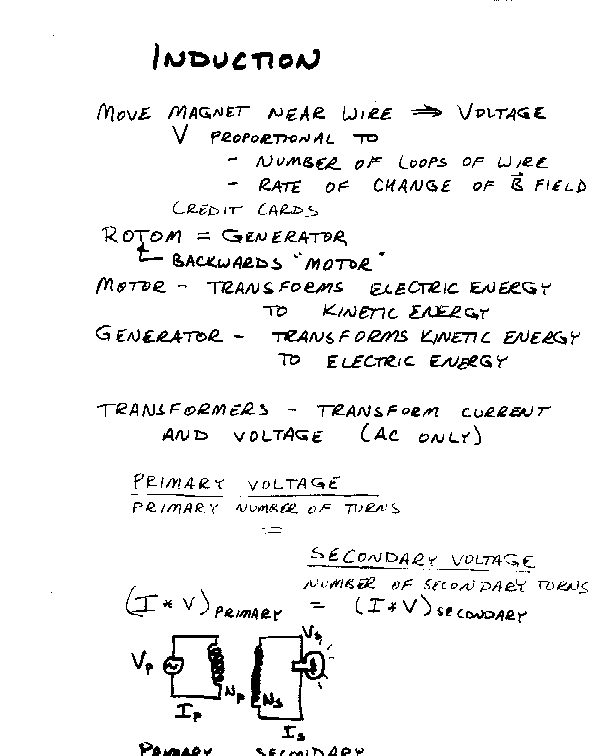 INDUCTION
MOVE MAGNET NEAR WIRE ⇒ VOLTAGE
V PROPORTIONAL TO
- NUMBER OF LOOPS OF WIRE
- RATE OF CHANGE OF B⃗ FIELD
CREDIT CARDS
ROTOM = GENERATOR
BACKWARDS "MOTOR"
MOTOR - TRANSFORMS ELECTRIC ENERGY
TO KINETIC ENERGY
GENERATOR - TRANSFORMS KINETIC ENERGY
TO ELECTRIC ENERGY
TRANSFORMERS - TRANSFORM CURRENT
AND VOLTAGE (AC ONLY)
PRIMARY VOLTAGE
PRIMARY NUMBER OF TURNS
=
SECONDARY VOLTAGE
NUMBER OF SECONDARY TURNS
(I * V) PRIMARY = (I * V) SECONDARY
Vs
Vp
Np Ns
Ip
Is
PRIMARY SECONDARY